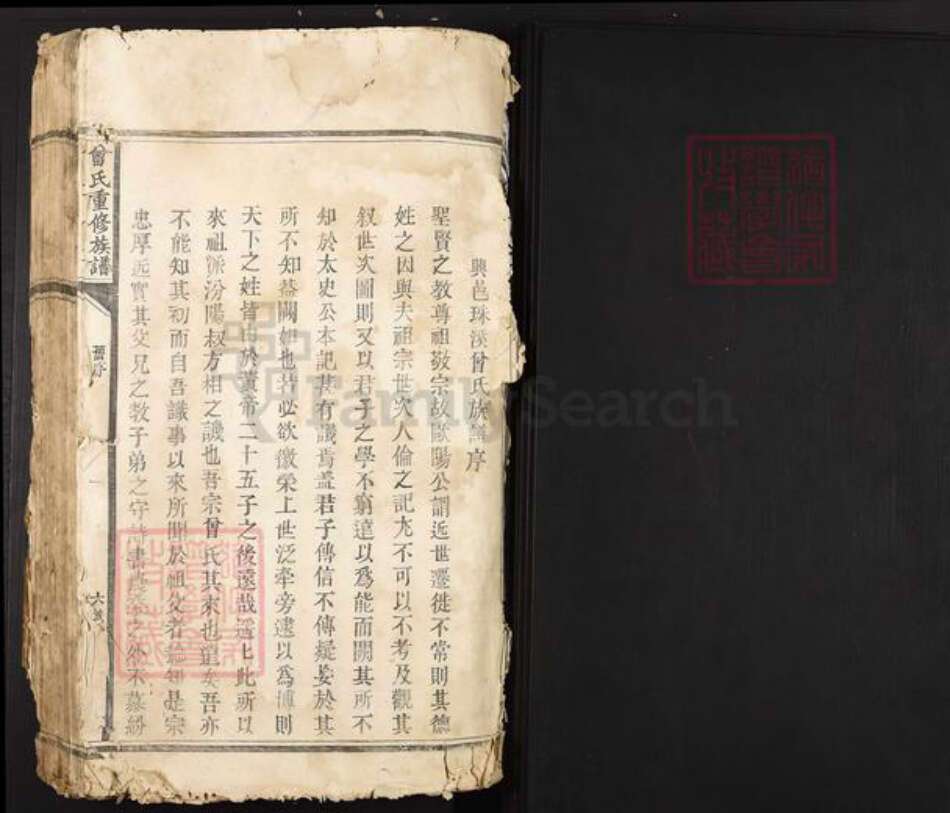 興邑珠溪曾氏族譜序
聖賢之教尊祖敬宗故歐陽公謂近世遷徙不常則其德
姓之因與夫祖宗世次人倫之記尤不可以不考及觀其
叙世次圖則又以君子之學不窮遠以爲能而闕其所不
知於太史公本記甚有譏焉蓋君子傳信不傳疑妄於其
所不知蓋闕如也若必欲徽榮上世泛牽旁逮以爲博則
天下之姓皆於黃帝二十五子之後遠哉遥七此所以
來祖派汾陽叔方相之譏也吾宗曾氏其來也遠矣吾亦
不能知其初而自吾識事以來所聞於祖父者知是宗
忠厚近實其父兄之教子弟之守詩書之不慕紛
曾氏重修族譜
舊序
一
六
FamilySearch